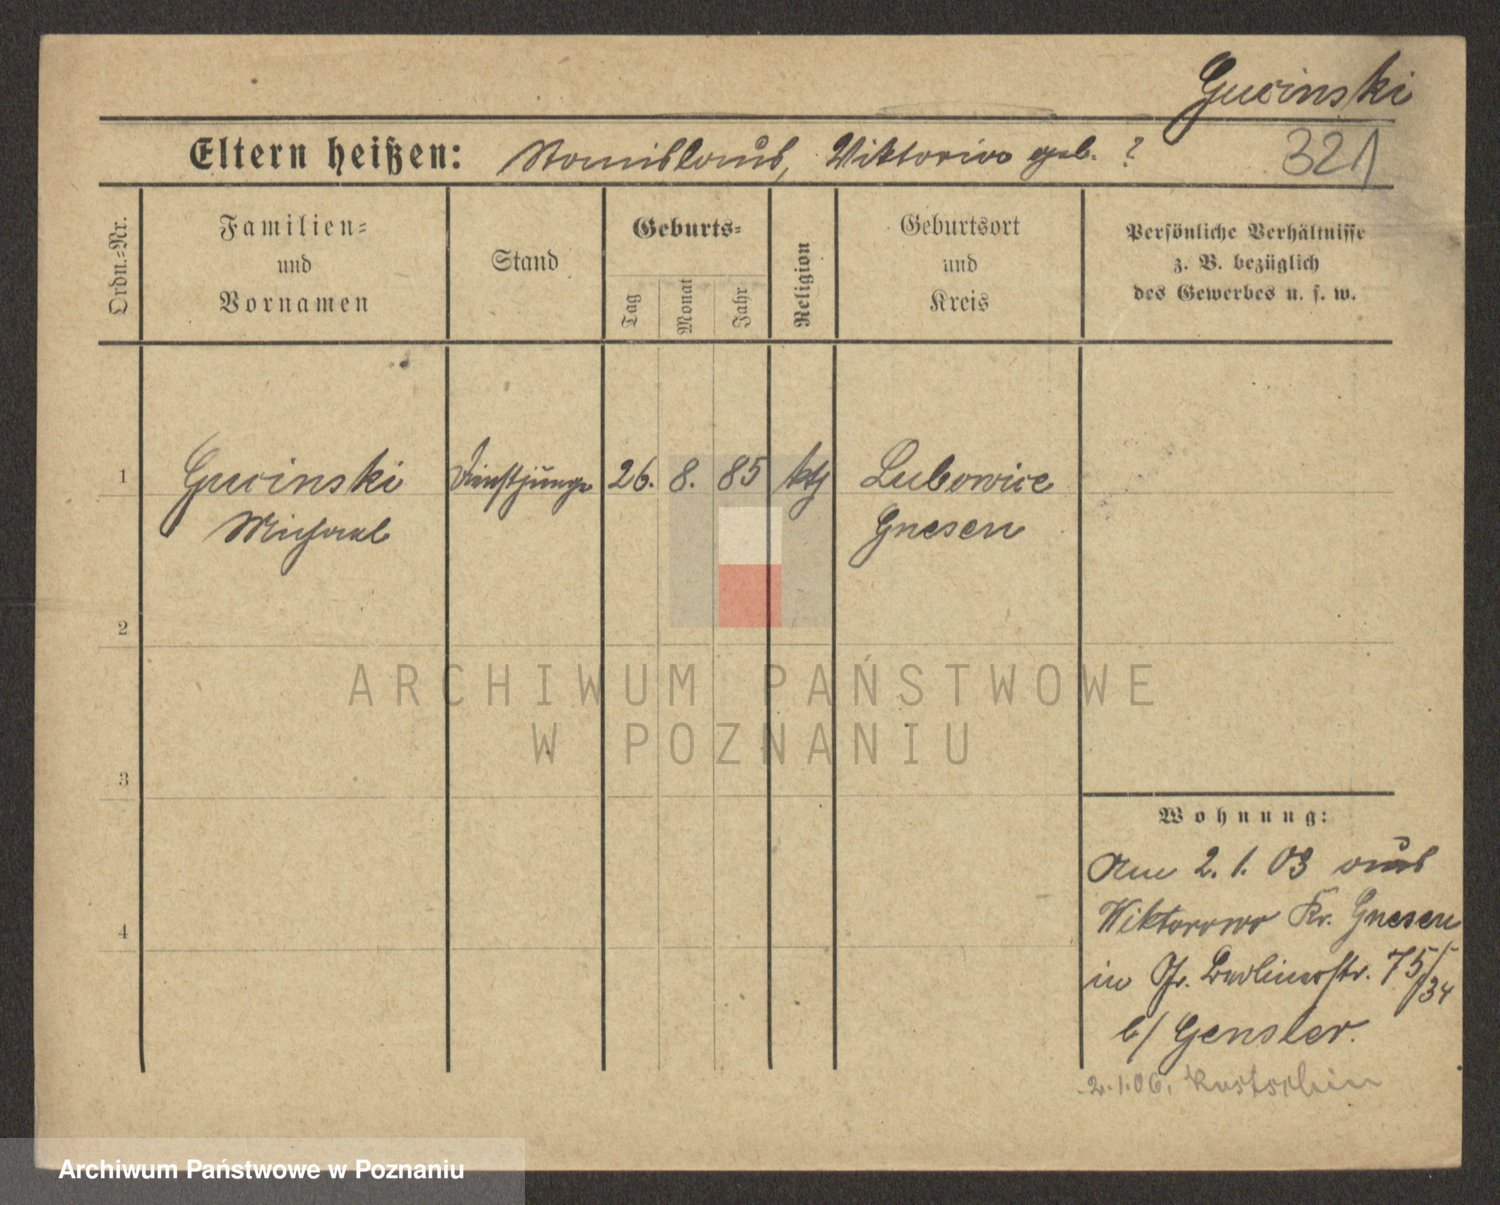 Gucinski
321
Eltern heißen: Stanislaus, Viktoria geb. ?
Ordn.=Nr.
Familien=
und
Vornamen
Stand
Geburts=
Tag
Monat
Jahr
Religion
Geburtsort
und
Kreis
Persönliche Verhältnisse
z. B. bezüglich
des Gewerbes u. s. w.
1 Gucinski Dienstjunge 26. 8. 85 kth Lubowice
Michael Gnesen
2
3
4
Wohnung:
Am 2. 1. 03 aus
Wiktorowo Kr. Gnesen
in Gr. Berlinerstr. 75/
/34
b/ Gensler.
2.1.06. Kostschin
ARCHIWUM PAŃSTWOWE
W POZNANIU
Archiwum Państwowe w Poznaniu